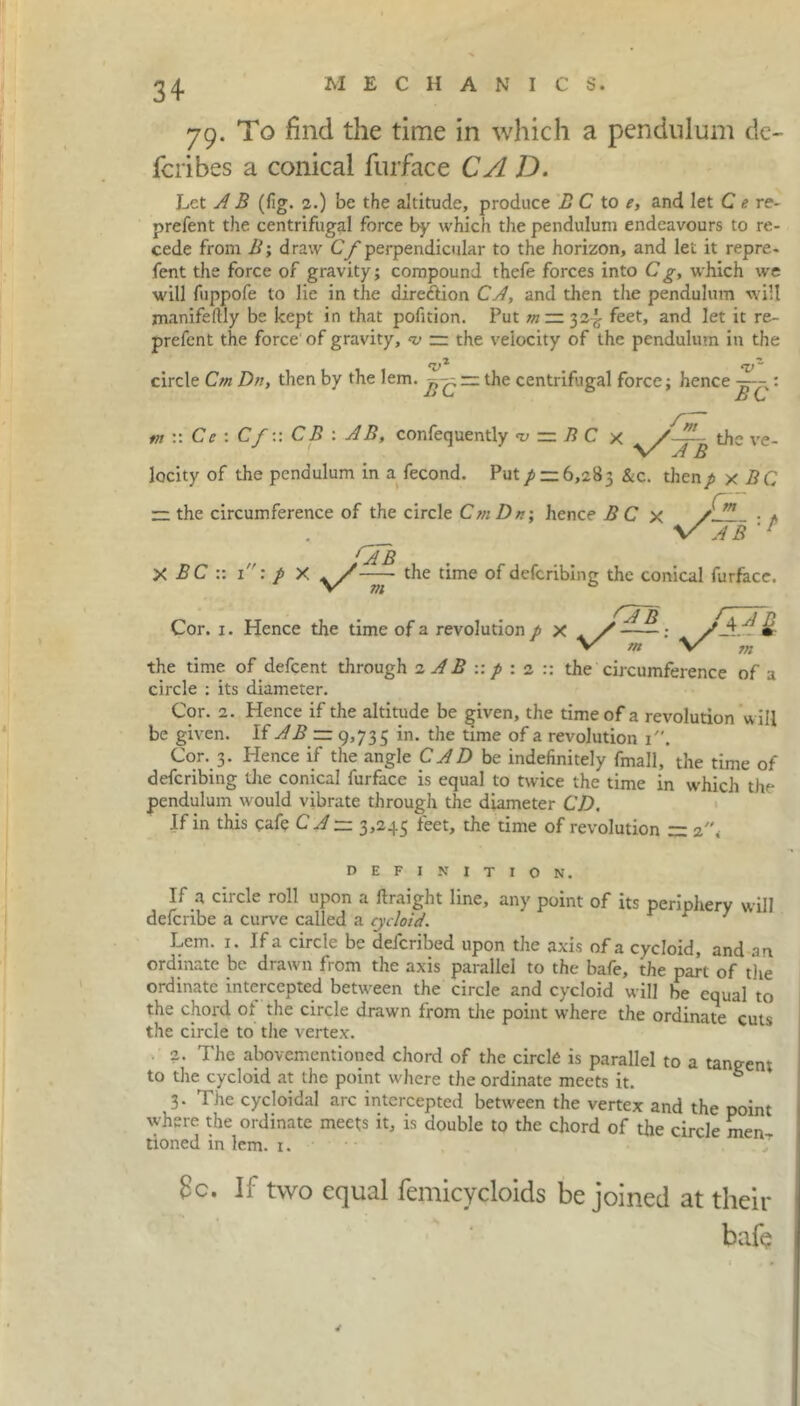 34 MECHANICS.
79. To find the time in which a pendulum de-
ſcribes a conical ſurface CAD.
Let AB (fig. 2.) be the altitude, produce BC to e, and let Ce re-
preſent the centrifugal force by which the pendulum endeavours to re-
cede from B; draw Cf perpendicular to the horizon, and let it repre-
ſent the force of gravity; compound theſe forces into Cg, which we
will ſuppoſe to lie in the direction CA, and then the pendulum will
manifeſtly be kept in that poſition. Put m = 32⅙ feet, and let it re-
preſent the force of gravity, v = the velocity of the pendulum in the
circle Cm Dn, then by the lem. v²/BC = the centrifugal force; hence v²/BC :
m :: Ce : Cf :: CB : AB, conſequently v = BC × √(m/AB) the ve-
locity of the pendulum in a ſecond. Put p = 6,283 &c. then p × BC
= the circumference of the circle Cm Dn; hence BC × √(m/AB) : p
× BC :: 1″ : p × √(AB/m) the time of deſcribing the conical ſurface.
Cor. 1. Hence the time of a revolution p × √(AB/m) : √(4AB/m)
the time of deſcent through 2 AB :: p : 2 :: the circumference of a
circle : its diameter.
Cor. 2. Hence if the altitude be given, the time of a revolution will
be given. If AB = 9,735 in. the time of a revolution 1″.
Cor. 3. Hence if the angle CAD be indefinitely ſmall, the time of
deſcribing the conical ſurface is equal to twice the time in which the
pendulum would vibrate through the diameter CD.
If in this caſe CA = 3,245 feet, the time of revolution = 2″.
DEFINITION.
If a circle roll upon a ſtraight line, any point of its periphery will
deſcribe a curve called a cycloid.
Lem. 1. If a circle be deſcribed upon the axis of a cycloid, and an
ordinate be drawn from the axis parallel to the baſe, the part of the
ordinate intercepted between the circle and cycloid will be equal to
the chord of the circle drawn from the point where the ordinate cuts
the circle to the vertex.
2. The abovementioned chord of the circle is parallel to a tangent
to the cycloid at the point where the ordinate meets it.
3. The cycloidal arc intercepted between the vertex and the point
where the ordinate meets it, is double to the chord of the circle men-
tioned in lem. 1.
80. If two equal ſemicycloids be joined at their
baſe